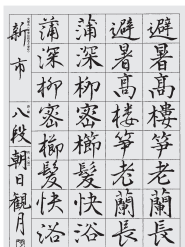 避暑高樓笋老蘭長
避暑高樓笋老蘭長
蒲深柳密櫛髮快浴
蒲深柳密櫛髮快浴
新市 八段 朝日観月